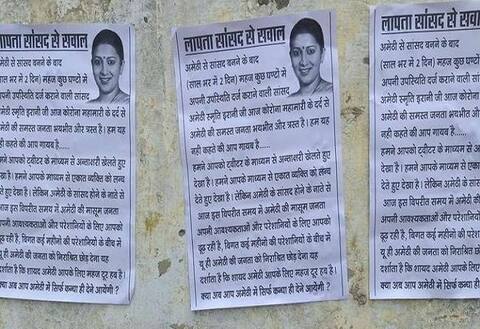 लापता सांसद से सवाल
अमेठी से सांसद बनने के बाद
(साल भर में 2 दिन) महज कुछ घण्टों में
अपनी उपस्थिति दर्ज कराने वाली सांसद
अमेठी स्मृति इरानी जी आज कोरोना महामारी के दर्द से
अमेठी की समस्त जनता भयभीत और त्रस्त है। हम यह
नही कहते की आप गायब है.....
हमने आपको ट्वीटर के माध्यम से अन्ताक्षरी खेलते हुए
देखा है। हमने आपके माध्यम से एकात व्यक्ति को लन्च
देते हुए देखा है। लेकिन अमेठी के सांसद होने के नाते से
आज इस विपरीत समय में अमेठी की मासूम जनता
अपनी आवश्यकताओं और परेशानियों के लिए आपको
ढूढ रही है, विगत कई महीनो की परेशानियों के बीच में
यू ही अमेठी की जनता को निराश्रित छोड़ देना यह
दर्शाता है कि शायद अमेठी आपके लिए महज टूर हब है।
क्या अब आप अमेठी में सिर्फ कन्धा ही देने आयेंगी ?
लापता सांसद से सवाल
अमेठी से सांसद बनने के बाद
(साल भर में 2 दिन) महज कुछ घण्टों में
अपनी उपस्थिति दर्ज कराने वाली सांसद
अमेठी स्मृति इरानी जी आज कोरोना महामारी के दर्द से
अमेठी की समस्त जनता भयभीत और त्रस्त है। हम यह
नही कहते की आप गायब है.....
हमने आपको ट्वीटर के माध्यम से अन्ताक्षरी खेलते हुए
देखा है। हमने आपके माध्यम से एकात व्यक्ति को लन्च
देते हुए देखा है। लेकिन अमेठी के सांसद होने के नाते से
आज इस विपरीत समय में अमेठी की मासूम जनता
अपनी आवश्यकताओं और परेशानियों के लिए आपको
ढूढ रही है, विगत कई महीनो की परेशानियों के बीच में
यू ही अमेठी की जनता को निराश्रित छोड़ देना यह
दर्शाता है कि शायद अमेठी आपके लिए महज टूर हब है।
क्या अब आप अमेठी में सिर्फ कन्धा ही देने आयेंगी ?
लापता सांसद से
अमेठी से सांसद बनने के बाद
(साल भर में 2 दिन) महज कुछ
अपनी उपस्थिति दर्ज कराने वाली
अमेठी स्मृति इरानी जी आज
अमेठी की समस्त जनता
नही कहते की आप गायब है.....
हमने आपको ट्वीटर के माध्यम
देखा है। हमने आपके माध्यम से
देते हुए देखा है। लेकिन अमेठी के
आज इस विपरीत समय में
अपनी आवश्यकताओं और
ढूढ रही है, विगत कई महीनो की
यू ही अमेठी की जनता को
दर्शाता है कि शायद अमेठी
क्या अब आप अमेठी में सिर्फ